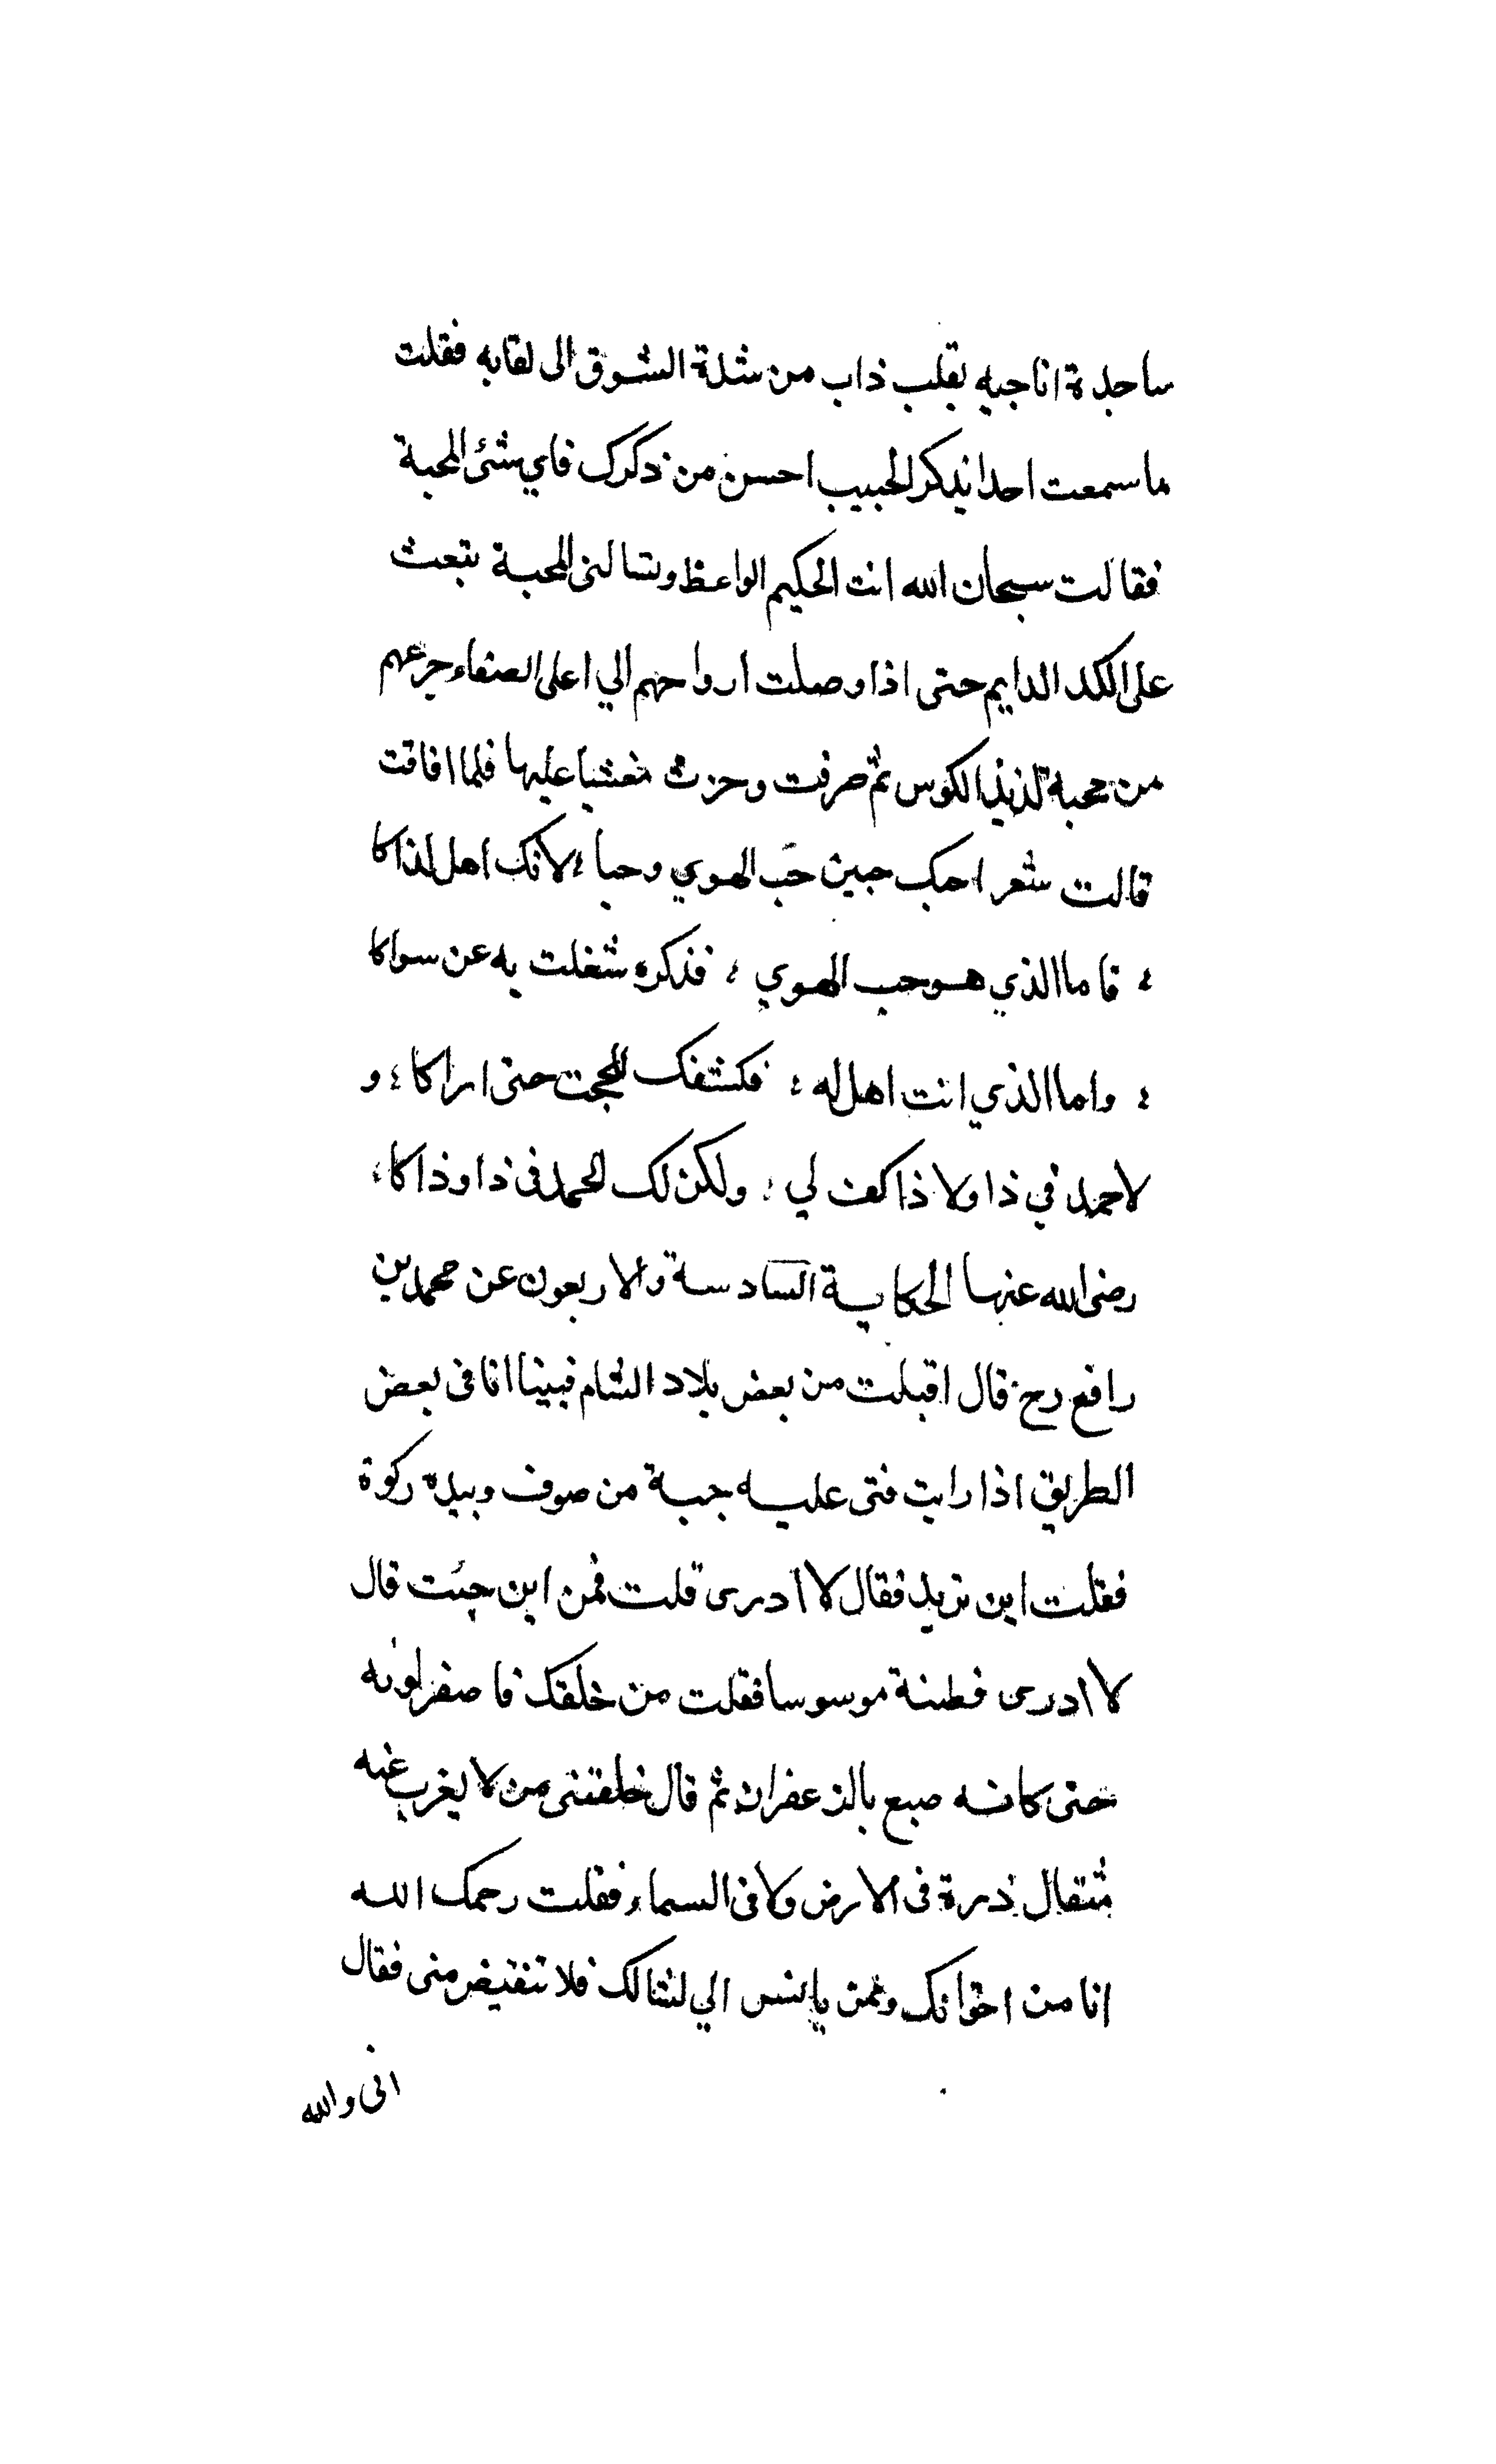 ساجدة اناجيه بقلب ذاب من شدة الشوق الى لقايه فقلت
ما سمعت احدا يذكر الحبيب احسن من ذكرك فاي شئ المحبة
فقالت سبحان الله انت الحكيم الواعظ وتسالنى المحبة تبعث
على الكد الدايم حتى اذا وصلت ارواحهم الي اعلى الصفاء جرعهم
من محبة لذيذ الكوس ثم صرفت وخرت مغشيا عليها فلما افاقت
قالت شعر احبك حبين حب الهوي وحبا ؛ لانك اهل لذاكا
؛ فاما الذي هو حب الهوي ؛ فذكره شغلت به عن سواكا
؛ واما الذي انت اهل له ؛ فكشفك للحجب حتى اراكا ؛ و
لا حمد في ذا ولا ذاك لي ؛ ولكن لك الحمد فى ذا وذاكا ؛
رضى الله عنها الحكاية السادسة والاربعون عن محمد بن
رافع رح قال اقبلت من بعض بلاد الشام فبينا انا فى بعض
الطريق اذا رايت فتى عليه جبة من صوف وبيده ركوة
فقلت اين تريد فقال لا ادرى قلت فمن اين جئت قال
لا ادرى فظننة موسوسا فقلت من خلقك فاصفر لونه
حتى كانه صبع بالزعفران ثم قال خلقنى من لا يغرب عنه
مثقال ذرة فى الارض ولا فى السماء فقلت رحمك الله
انا من اخوانك وممن يانس الي امثالك فلا تنقبض منى فقال
انى والله